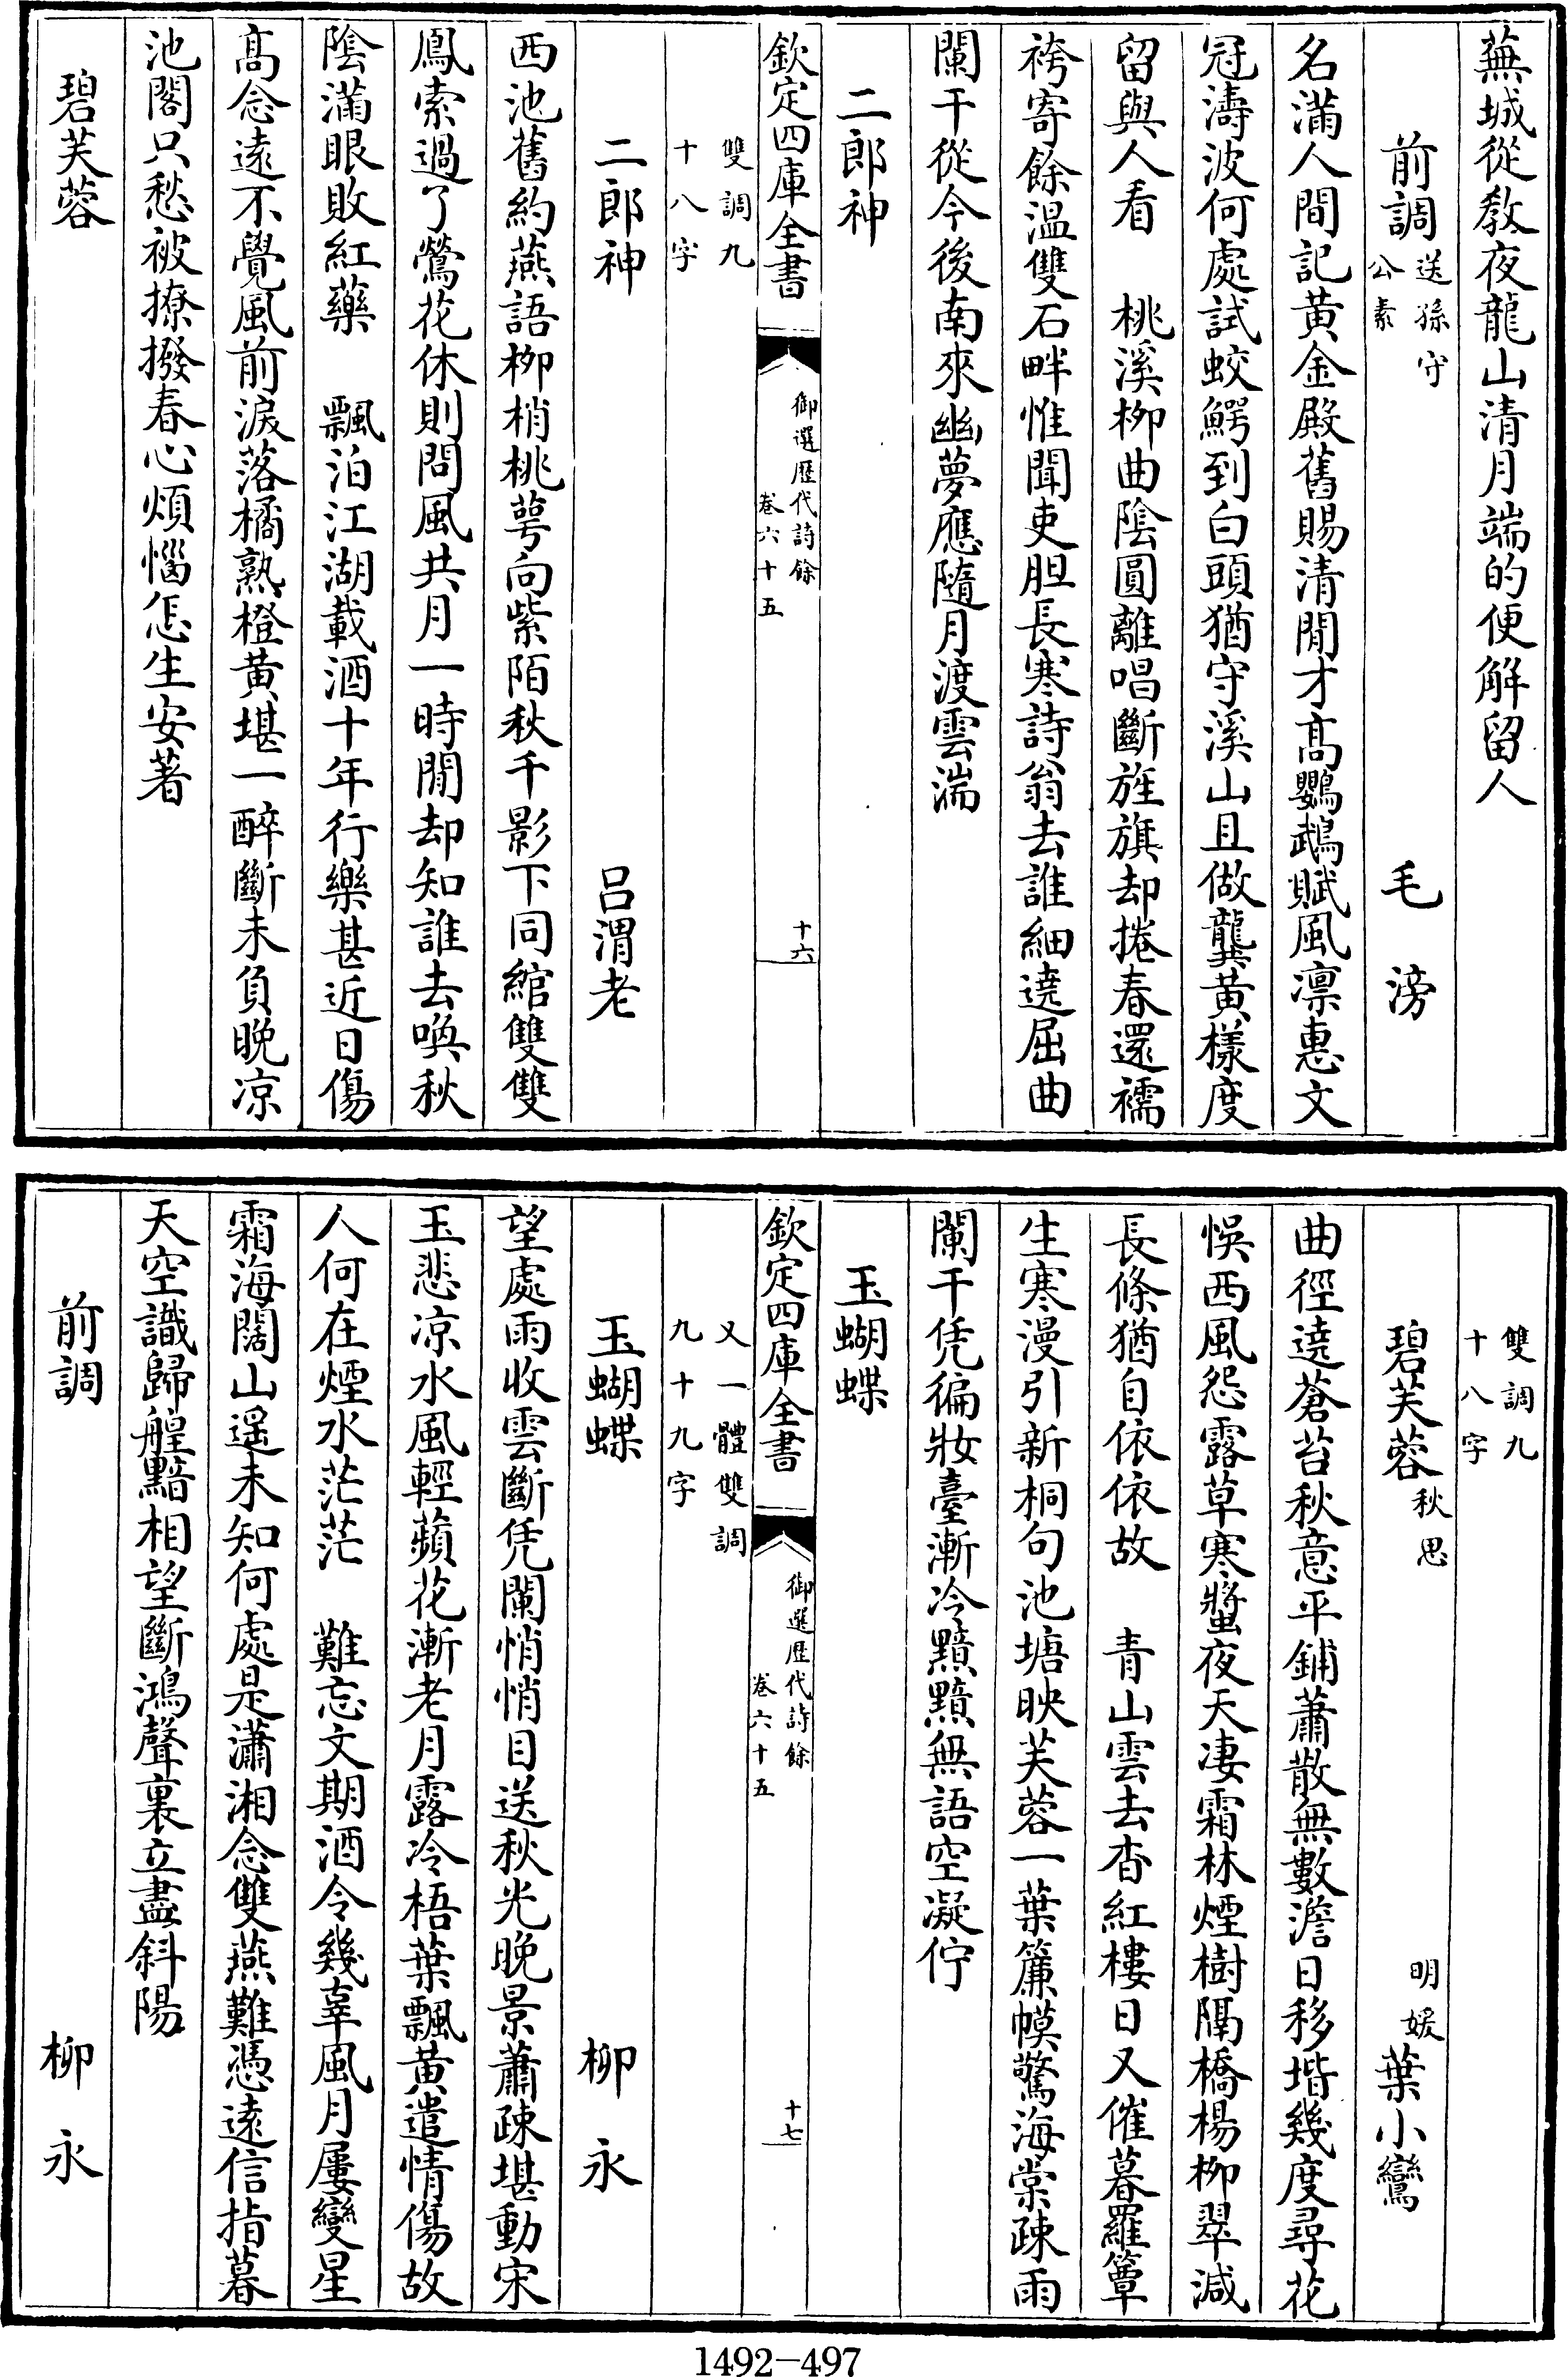 蕪城從教夜龍山清月端的便解留人
前調送孫守公素 毛滂
名滿人間記黃金殿舊賜清閒才高鸚鵡賦風凛惠文
冠濤波何處試蛟鰐到白頭猶守溪山且做龔黃樣度
留與人看 桃溪柳曲陰圓離唱斷旌旗却捲春還襦
袴寄餘温雙石畔惟聞吏胆長寒詩翁去誰細遶屈曲
闌干從今後南來幽夢應隨月渡雲湍
二郎神
欽定四庫全書 御選歷代詩餘卷六十五 十六
雙調九十八字
二郎神 吕渭老
西池舊約燕語柳梢桃萼向紫陌秋千影下同綰雙雙
鳳索過了鶯花休則問風共月一時閒却知誰去喚秋
陰滿眼敗紅藥 飄泊江湖載酒十年行樂甚近日傷
高念遠不覺風前淚落橘熟橙黃堪一醉斷未負晚凉
池閣只愁被撩撥春心煩惱怎生安著
碧芙蓉
雙調九十八字
碧芙蓉秋思 明媛葉小鸞
曲徑遶蒼苔秋意平鋪蕭散無數澹日移堦幾度尋花
悞西風怨露草寒螿夜天凄霜林煙樹隔橋楊柳翠減
長條猶自依依故 青山雲去杳紅樓日又催暮羅簟
生寒漫引新桐句池塘映芙蓉一葉簾幙驚海棠疎雨
闌干凭徧妝臺漸冷黯黯無語空凝佇
玉蝴蝶
欽定四庫全書 御選歷代詩餘卷六十五 十七
又一體雙調九十九字
玉蝴蝶 柳永
望處雨收雲斷凭闌悄悄目送秋光晚景蕭疎堪動宋
玉悲凉水風輕蘋花漸老月露冷梧葉飄黃遣情傷故
人何在煙水茫茫 難忘文期酒令幾辜風月屢變星
霜海闊山遥未知何處是瀟湘念雙燕難憑遠信指暮
天空識歸艎黯相望斷鴻聲裏立盡斜陽
前調 柳永
1492-497